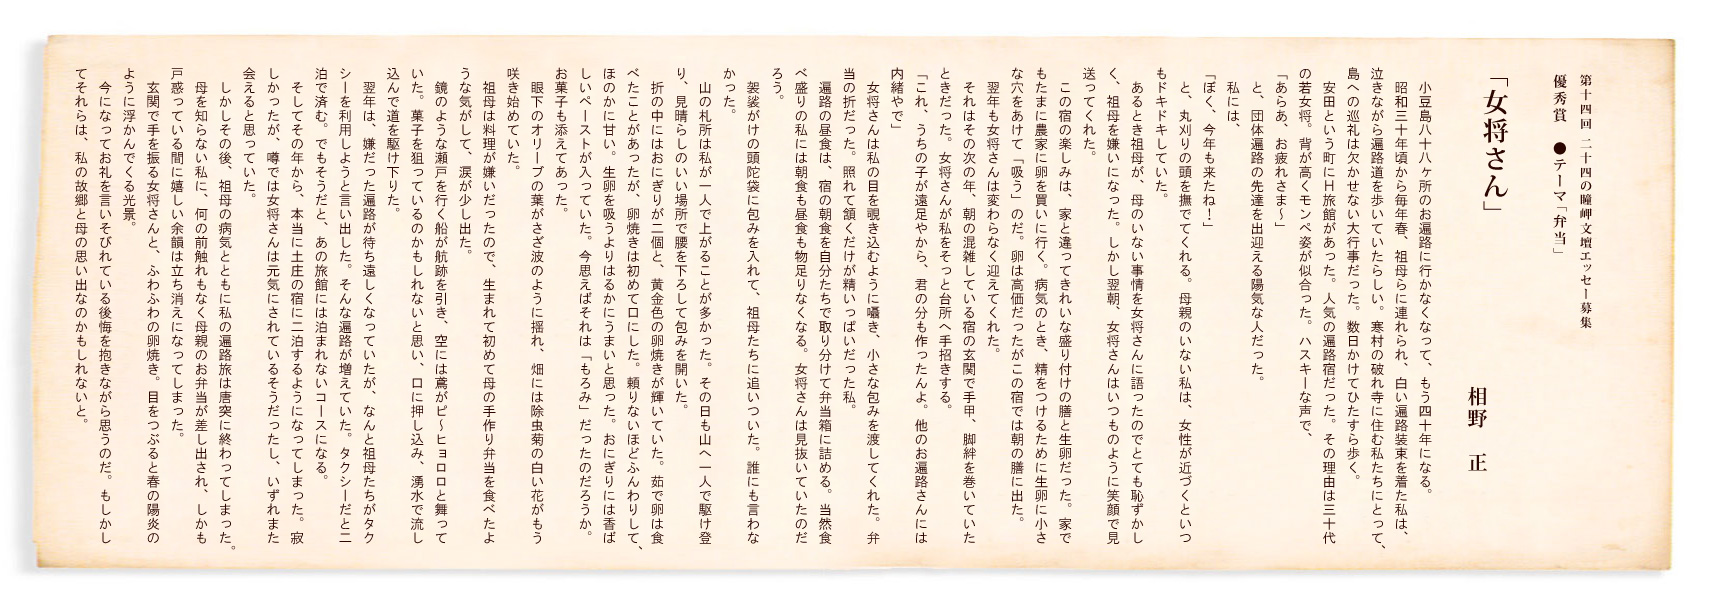 第十四回 二十四の瞳岬文壇エッセー募集
優秀賞 ●テーマ「弁当」
「女将さん」
相野 正
小豆島八十八ヶ所のお遍路に行かなくなって、もう四十年になる。
昭和三十年頃から毎年春、祖母らに連れられ、白い遍路装束を着た私は、
泣きながら遍路道を歩いていたらしい。寒村の破れ寺に住む私たちにとって、
島への巡礼は欠かせない大行事だった。数日かけてひたすら歩く。
安田という町にＨ旅館があった。人気の遍路宿だった。その理由は三十代
の若女将。背が高くモンペ姿が似合った。ハスキーな声で、
「あらあ、お疲れさま～」
と、団体遍路の先達を出迎える陽気な人だった。
私には、
「ぼく、今年も来たね！」
と、丸刈りの頭を撫でてくれる。母親のいない私は、女性が近づくといつ
もドキドキしていた。
あるとき祖母が、母のいない事情を女将さんに語ったのでとても恥ずかし
く、祖母を嫌いになった。しかし翌朝、女将さんはいつものように笑顔で見
送ってくれた。
この宿の楽しみは、家と違ってきれいな盛り付けの膳と生卵だった。家で
もたまに農家に卵を買いに行く。病気のとき、精をつけるために生卵に小さ
な穴をあけて「吸う」のだ。卵は高価だったがこの宿では朝の膳に出た。
翌年も女将さんは変わらなく迎えてくれた。
それはその次の年、朝の混雑している宿の玄関で手甲、脚絆を巻いていた
ときだった。女将さんが私をそっと台所へ手招きする。
「これ、うちの子が遠足やから、君の分も作ったんよ。他のお遍路さんには
内緒やで」
女将さんは私の目を覗き込むように囁き、小さな包みを渡してくれた。弁
当の折だった。照れて頷くだけが精いっぱいだった私。
遍路の昼食は、宿の朝食を自分たちで取り分けて弁当箱に詰める。当然食
べ盛りの私には朝食も昼食も物足りなくなる。女将さんは見抜いていたのだ
ろう。
袈裟がけの頭陀袋に包みを入れて、祖母たちに追いついた。誰にも言わな
かった。
山の札所は私が一人で上がることが多かった。その日も山へ一人で駆け登
り、見晴らしのいい場所で腰を下ろして包みを開いた。
折の中にはおにぎりが二個と、黄金色の卵焼きが輝いていた。茹で卵は食
べたことがあったが、卵焼きは初めて口にした。頼りないほどふんわりして、
ほのかに甘い。生卵を吸うよりはるかにうまいと思った。おにぎりには香ば
しいペーストが入っていた。今思えばそれは「もろみ」だったのだろうか。
お菓子も添えてあった。
眼下のオリーブの葉がさざ波のように揺れ、畑には除虫菊の白い花がもう
咲き始めていた。
祖母は料理が嫌いだったので、生まれて初めて母の手作り弁当を食べたよ
うな気がして、涙が少し出た。
鏡のような瀬戸を行く船が航跡を引き、空には鳶がピ～ヒョロロと舞って
いた。菓子を狙っているのかもしれないと思い、口に押し込み、湧水で流し
込んで道を駆け下りた。
翌年は、嫌だった遍路が待ち遠しくなっていたが、なんと祖母たちがタク
シーを利用しようと言い出した。そんな遍路が増えていた。タクシーだと二
泊で済む。でもそうだと、あの旅館には泊まれないコースになる。
そしてその年から、本当に土庄の宿に二泊するようになってしまった。寂
しかったが、噂では女将さんは元気にされているそうだったし、いずれまた
会えると思っていた。
しかしその後、祖母の病気とともに私の遍路旅は唐突に終わってしまった。
母を知らない私に、何の前触れもなく母親のお弁当が差し出され、しかも
戸惑っている間に嬉しい余韻は立ち消えになってしまった。
玄関で手を振る女将さんと、ふわふわの卵焼き。目をつぶると春の陽炎の
ように浮かんでくる光景。
今になってお礼を言いそびれている後悔を抱きながら思うのだ。もしかし
てそれらは、私の故郷と母の思い出なのかもしれないと。